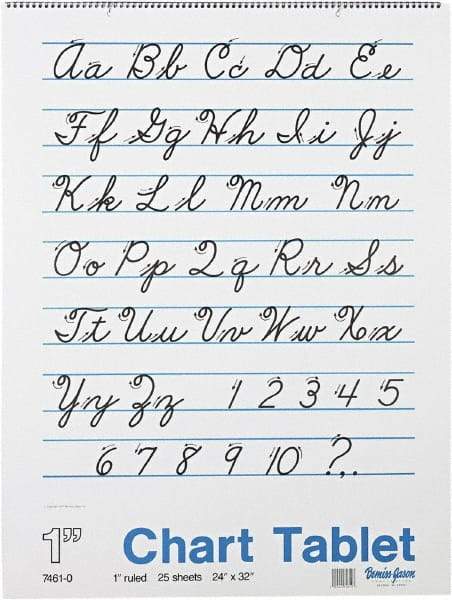 Aa Bb Cc Dd Ee
Ff Gg Hh Ii Jj
Kk Ll Mm Nn
Oo Pp Qq Rr Ss
Tt Uu Vv Ww Xx
Yy Zz 1 2 3 4 5
6 7 8 9 10 ? , .
1” Chart Tablet
7461-0 1” ruled 25 sheets 24” x 32” Bemiss-Jason